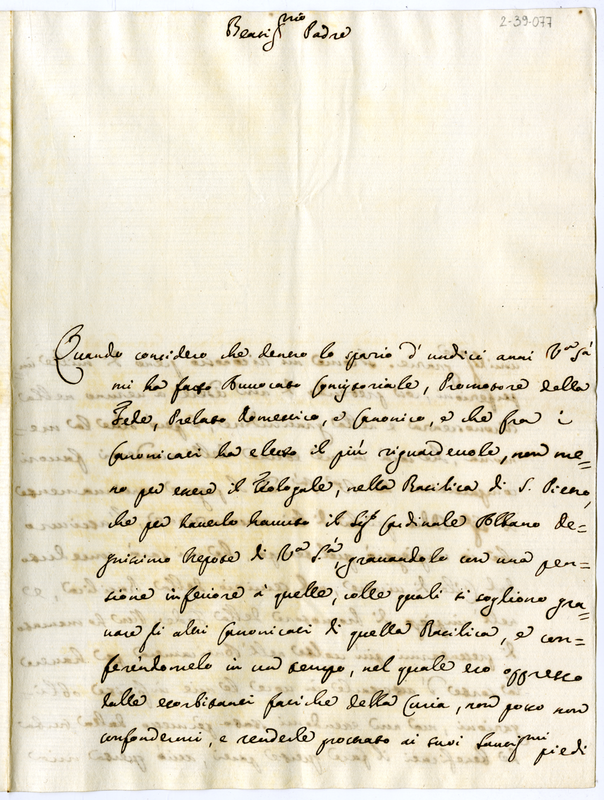 2-39-077
Beatis.mo Padre
Quando considero che dentro lo spazio d'undici anni V.a S.tà
mi ha fatto Avvocato Concistoriale, Promotore della
Fede, Prelato Domestico, e Canonico, e che fra i
Canonicati ha eletto il più riguardevole, non me=
no per essere il Teologale, nella Basilica di S. Pietro,
che per haverlo havuto il Sig.r Cardinale Albano de=
gnissimo Nepote di V.a S.tà, gravandolo con una pen=
sione inferiore à quelle, colle quali si sogliono gra=
vare gli altri Canonicati di quella Basilica, e con=
ferendomelo in un tempo, nel quale ero oppresso
dalle esorbitanti fatiche della Curia, non posso non
confondermi, e renderle prostrato ai suoi Santis.mi
piedi